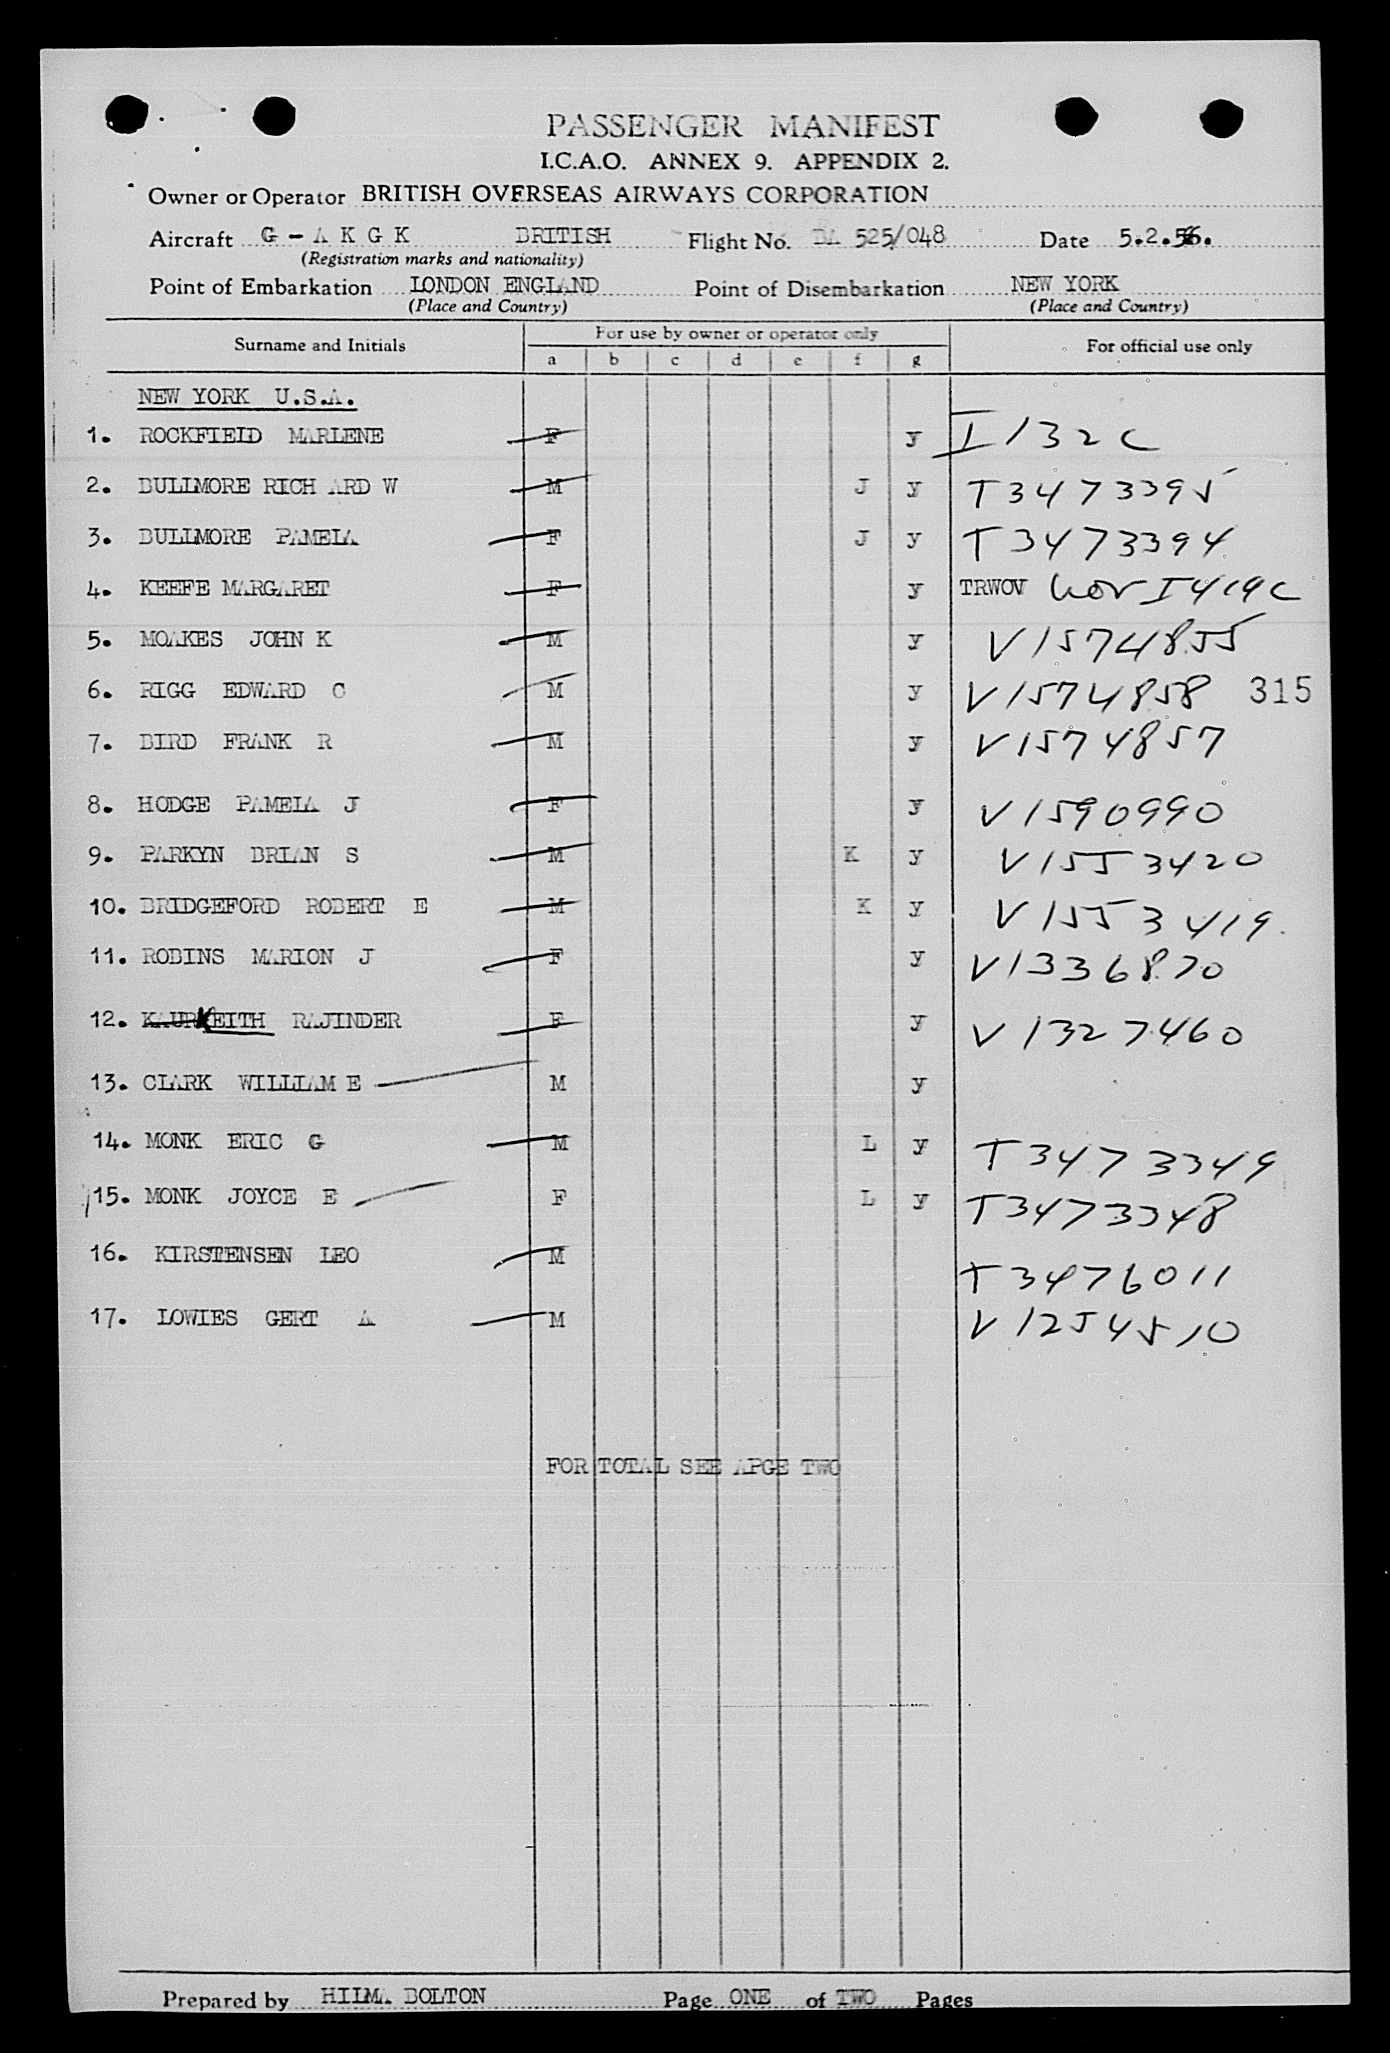 PASSENGER MANIFEST
I.C.A.O. ANNEX 9. APPENDIX 2.
Owner or Operator BRITISH OVERSEAS AIRWAYS CORPORATION
Aircraft G - A K G K BRITISH Flight No. BA 525/048 Date 5.2.56.
(Registration marks and nationality)
Point of Embarkation LONDON ENGLAND Point of Disembarkation NEW YORK
(Place and Country) (Place and Country)
Surname and Initials For use by owner or operator only For official use only
a b c d e f g
NEW YORK U.S.A.
1. ROCKFIELD MARLENE F y I 132 C
2. BULLMORE RICH ARD W M J y T3473395
3. BULLMORE PAMELA F J y T3473394
4. KEEFE MARGARET F y TRWOV WOV I419C
5. MOAKES JOHN K M y V1574855
6. RIGG EDWARD C M y V1574858 315
7. BIRD FRANK R M y V1574857
8. HODGE PAMELA J F y V1590990
9. PARKYN BRIAN S M K y V1553420
10. BRIDGEFORD ROBERT E M K y V1553419.
11. ROBINS MARION J F y V1336870
12. KAUR KEITH RAJINDER F y V1327460
13. CLARK WILLIAM E M y
14. MONK ERIC G M L y T3473349
15. MONK JOYCE E F L y T3473348
16. KIRSTENSEN LEO M T3476011
17. LOWIES GERT A M V1254510
FOR TOTAL SEE APGE TWO
Prepared by HILMA BOLTON Page ONE of TWO Pages